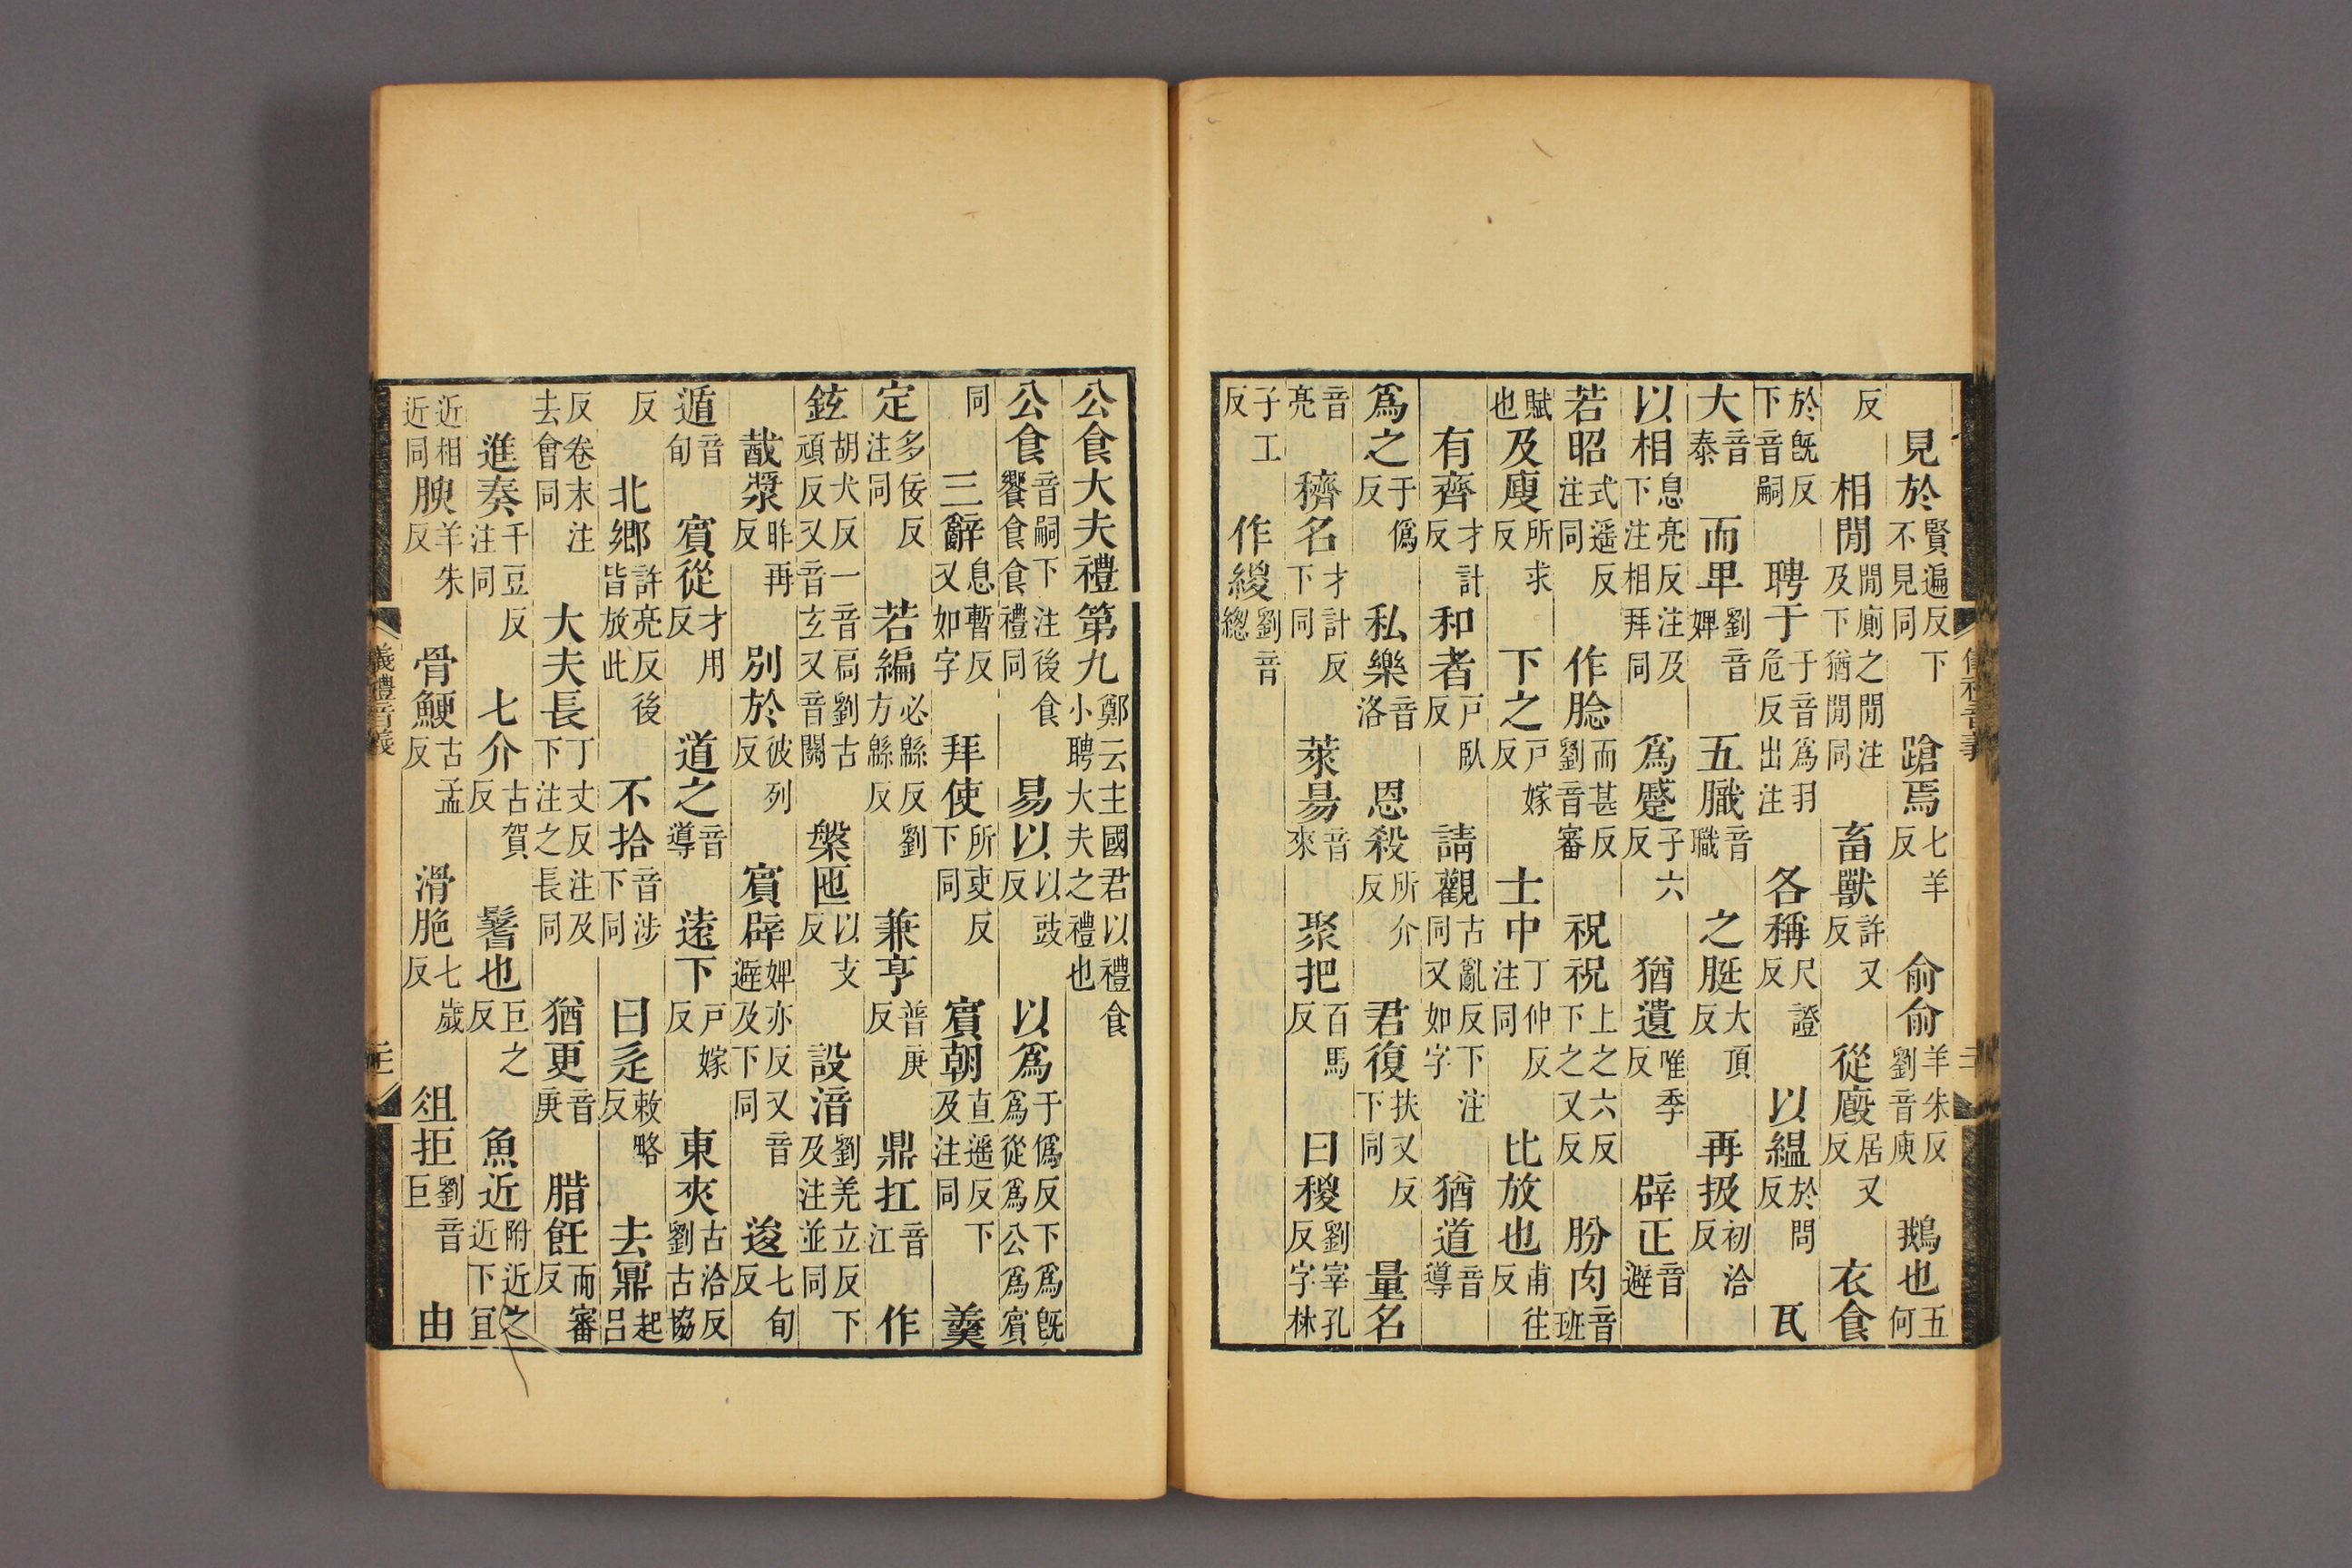 見於賢遍反下不見同蹌焉七羊反俞俞羊朱反劉音庾鵝也五何
反相閒閒廁之閒注及下猶閒同畜獸許又反從廄居又反衣食
於既反下音嗣聘于于音爲羽危反出注各稱尺證反以緼於問反瓦
大音泰而卑劉音婢五膱音職之脡大頂反再扱初洽反
以相息亮反注及下注相拜同爲蹙子六反猶遺唯季反辟正音避
若昭式遥反注同作腍而甚反劉音審祝祝上之六反下之又反肦肉音班
賦也及廋所求反下之戸嫁反士中丁仲反注同比放也甫往反
有齊才計反和者戸臥反請觀古亂反下注同又如字猶道音導
爲之于僞反私樂音洛恩殺所介反君復扶又反下同量名
音亮穧名才計反下同萊昜音來聚把百馬反曰稯劉宰孔反字林
子工反作緵劉音總
公食大夫禮第九鄭云主國君以禮食小聘大夫之禮也
公食音嗣下注後食饗食食禮同易以以豉反以爲于僞反下爲既爲從爲公爲賓
同三辭息暫反又如字拜使所吏反下同賓朝直遥反下及注同羹
定多佞反注同若編必緜反劉方緜反兼亨普庚反鼎扛音江作
鉉胡犬反一音扃劉古頑反又音玄又音關槃匜以支反設湆劉羌立反下及注並同
酨漿昨再反別於彼列反賓辟婢亦反又音避及下同逡七旬反
遁音旬賓從才用反道之音導遠下戸嫁反東夾古洽反劉古協
反北鄉許亮反後皆放此不拾音涉下同曰辵敕略反去鼏起呂
反卷末注去會同大夫長丁丈反注及下注之長同猶更音庚腊飪而審反
進奏千豆反注同七介古賀反鬐也巨之反魚近附近之近下宜
近相近同腴羊朱反骨鯁古孟反滑脃七歲反俎拒劉音巨由
儀禮音義